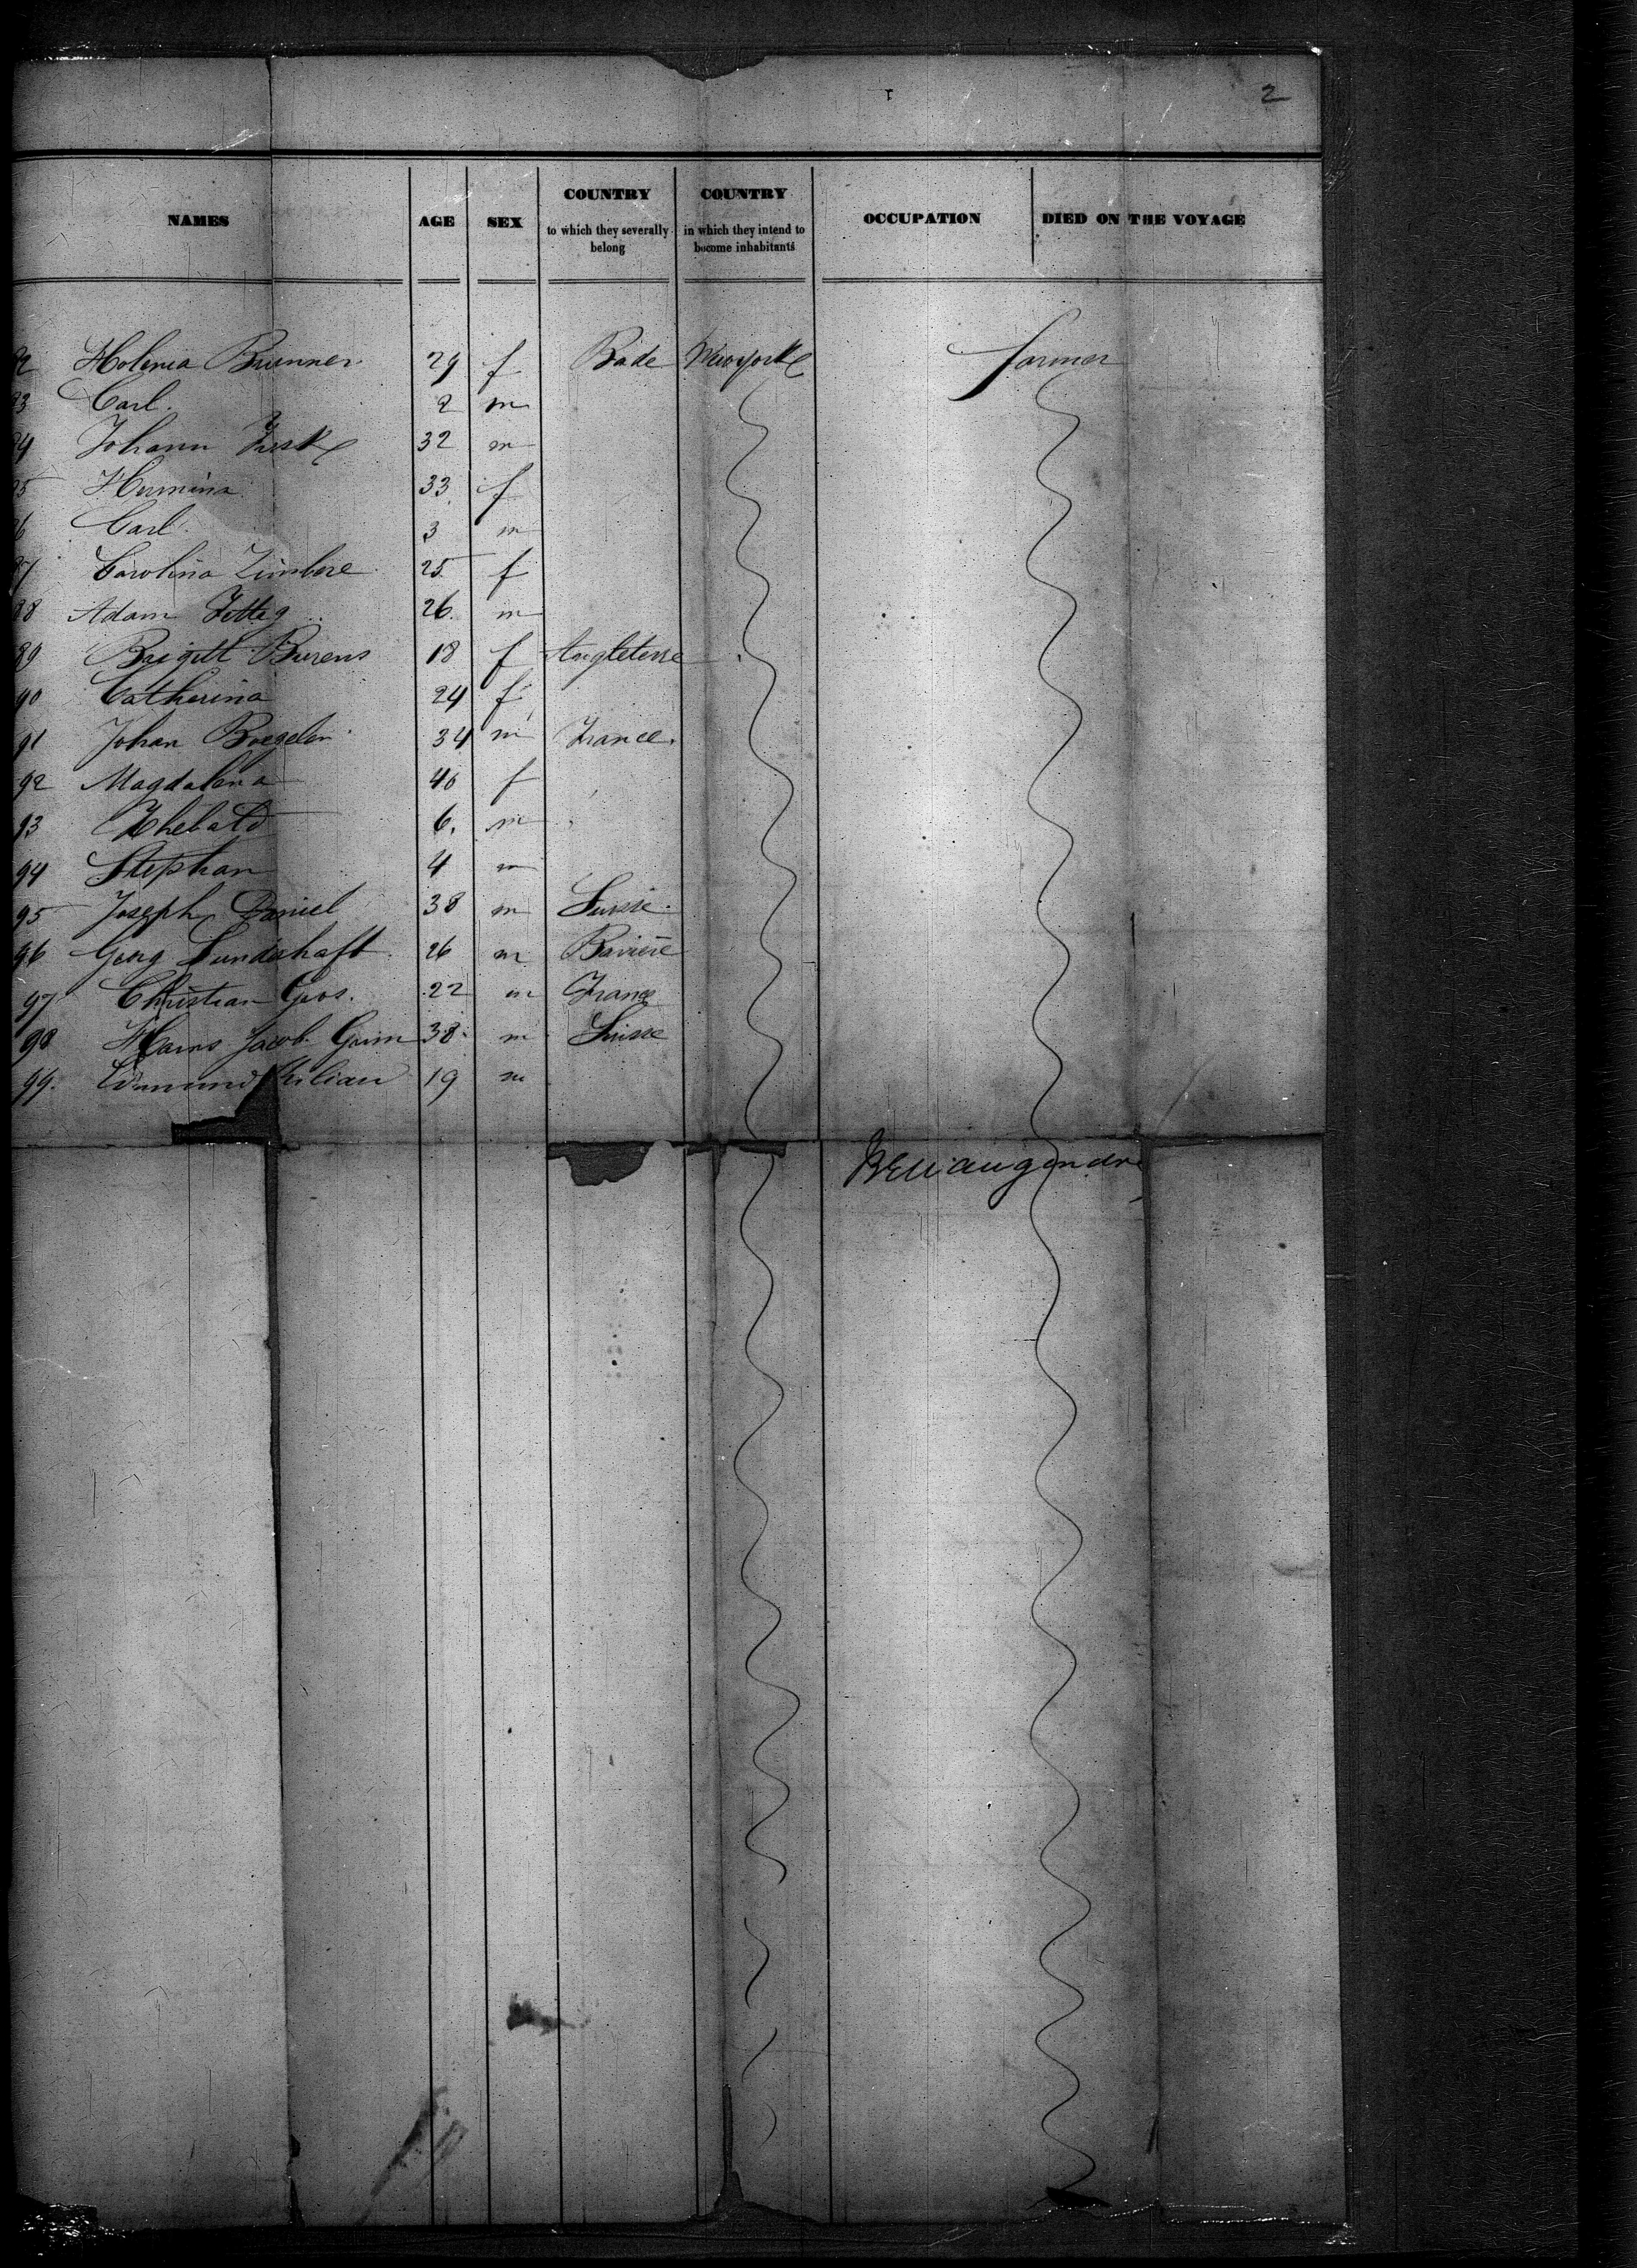 2
NAMES AGE SEX COUNTRY to which they severally belong COUNTRY in which they intend to become inhabitants OCCUPATION DIED ON THE VOYAGE
Brunner 29 f Bade Newyork farmer
Carl 2 m
Johann 32 m
Hermina 33 f
Carl 3 m
Carolina 25 f
88 Adam 26 m
89 Brigitt 18 f Angleterre
90 Catherina 24 f
91 Johan 34 m France
92 Magdalena 40 f
93 Thebald 6 m
94 Stephan 4 m
95 Joseph Daniel 38 m Suisse
96 Georg 26 m Baviere
97 Christian Gros 22 m France
98 Hans Jacob Grim 38 m Suisse
99 Edmund Kilian 19 m